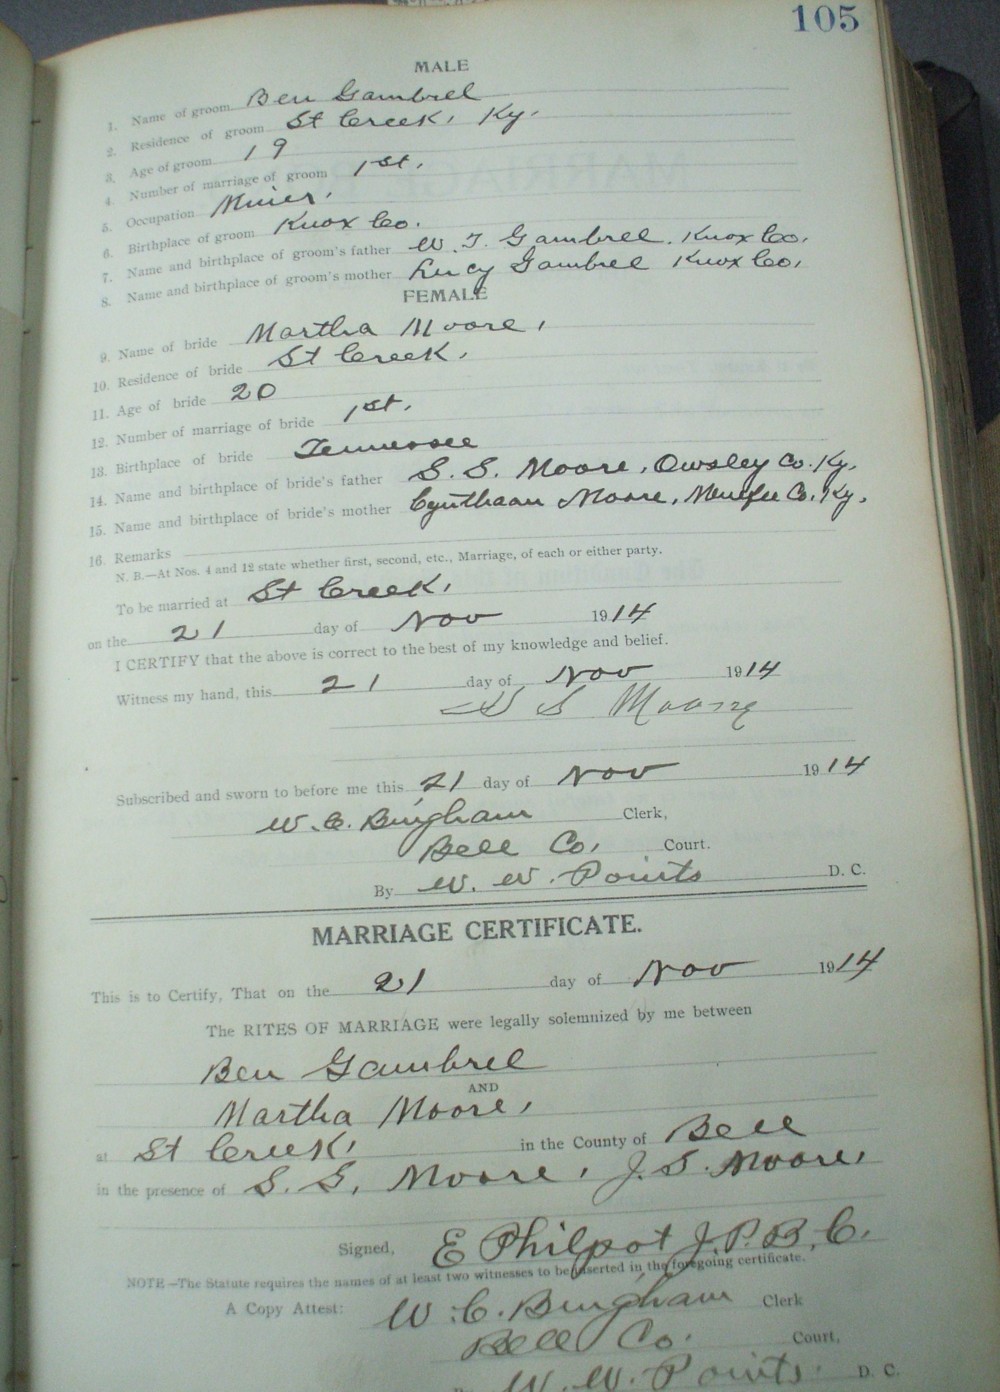 105
MALE
1. Name of groom Ben Gambrel
2. Residence of groom St Creek, Ky.
3. Age of groom 19
4. Number of marriage of groom 1st.
5. Occupation Miner.
6. Birthplace of groom Knox Co.
7. Name and birthplace of groom's father W. T. Gambrel. Knox Co.
8. Name and birthplace of groom's mother Lucy Gambrel Knox Co.
FEMALE
9. Name of bride Martha Moore,
10. Residence of bride St Creek.
11. Age of bride 20
12. Number of marriage of bride 1st.
13. Birthplace of bride Tennessee
14. Name and birthplace of bride's father S. S. Moore, Owsley Co. Ky.
15. Name and birthplace of bride's mother Cynthaan Moore, Menifee Co. Ky.
16. Remarks
N. B.—At Nos. 4 and 12 state whether first, second, etc., Marriage, of each or either party.
To be married at St Creek,
on the 21 day of Nov 1914
I CERTIFY that the above is correct to the best of my knowledge and belief.
Witness my hand, this 21 day of Nov 1914
S S Moore
Subscribed and sworn to before me this 21 day of Nov 1914
W. C. Bingham Clerk,
Bell Co. Court.
By W. W. Points D. C.
MARRIAGE CERTIFICATE.
This is to Certify, That on the 21 day of Nov 1914
The RITES OF MARRIAGE were legally solemnized by me between
Ben Gambrel
AND
Martha Moore,
at St Creek, in the County of Bell
in the presence of S. S. Moore, J. S. Moore,
Signed, E Philpot J. P. B. C.
NOTE—The Statute requires the names of at least two witnesses to be inserted in the foregoing certificate.
A Copy Attest: W. C. Bingham Clerk
Bell Co. Court,
W. W. Points D. C.